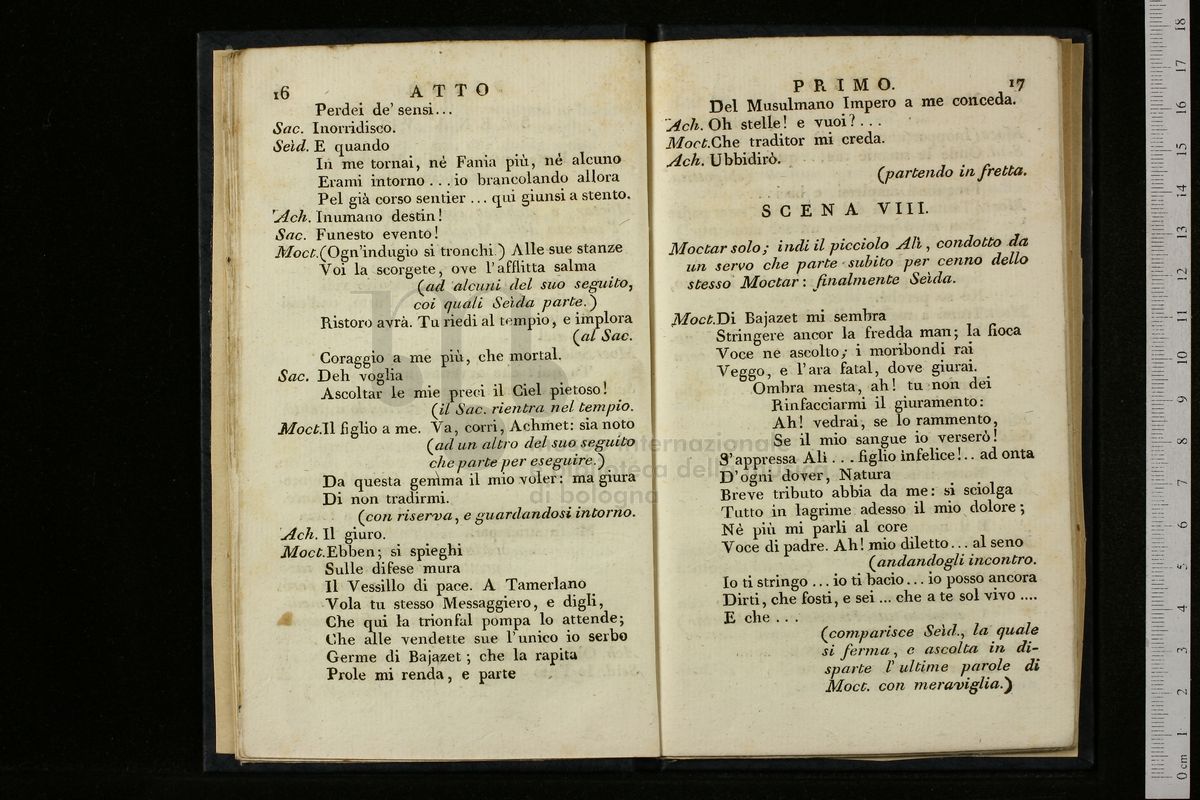 16 ATTO
Perdei de' sensi...
Sac. Inorridisco.
Seìd. E quando
In me tornai, nè Fania più, nè alcuno
Erami intorno ... io brancolando allora
Pel già corso sentier ... qui giunsi a stento.
Ach. Inumano destin!
Sac. Funesto evento!
Moct. (Ogn'indugio si tronchi.) Alle sue stanze
Voi la scorgete, ove l'afflitta salma
(ad alcuni del suo seguito,
coi quali Seìda parte.)
Ristoro avrà. Tu riedi al tempio, e implora
(al Sac.
Coraggio a me più, che mortal.
Sac. Deh voglia
Ascoltar le mie preci il Ciel pietoso!
(il Sac. rientra nel tempio.
Moct. Il figlio a me. Va, corri, Achmet: sia noto
(ad un altro del suo seguito
che parte per eseguire.)
Da questa gemma il mio voler: ma giura
Di non tradirmi.
(con riserva, e guardandosi intorno.
Ach. Il giuro.
Moct. Ebben; si spieghi
Sulle difese mura
Il Vessillo di pace. A Tamerlano
Vola tu stesso Messaggiero, e digli,
Che qui la trionfal pompa lo attende;
Che alle vendette sue l'unico io serbo
Germe di Bajazet; che la rapita
Prole mi renda, e parte
PRIMO. 17
Del Musulmano Impero a me conceda.
Ach. Oh stelle! e vuoi?...
Moct. Che traditor mi creda.
Ach. Ubbidirò.
(partendo in fretta.
SCENA VIII.
Moctar solo; indi il picciolo Alì, condotto da
un servo che parte subito per cenno dello
stesso Moctar: finalmente Seìda.
Moct. Di Bajazet mi sembra
Stringere ancor la fredda man; la fioca
Voce ne ascolto; i moribondi rai
Veggo, e l'ara fatal, dove giurai.
Ombra mesta, ah! tu non dei
Rinfacciarmi il giuramento:
Ah! vedrai, se lo rammento,
Se il mio sangue io verserò!
S'appressa Alì ... figlio infelice!.. ad onta
D'ogni dover, Natura
Breve tributo abbia da me: si sciolga
Tutto in lagrime adesso il mio dolore;
Nè più mi parli al core
Voce di padre. Ah! mio diletto... al seno
(andandogli incontro.
Io ti stringo ... io ti bacio... io posso ancora
Dirti, che fosti, e sei ... che a te sol vivo ....
E che ...
(comparisce Seìd., la quale
si ferma, e ascolta in di-
sparte l'ultime parole di
Moct. con meraviglia.)
internazionale
biblioteca della musica
di bologna
0 cm 1 2 3 4 5 6 7 8 9 10 11 12 13 14 15 16 17 18